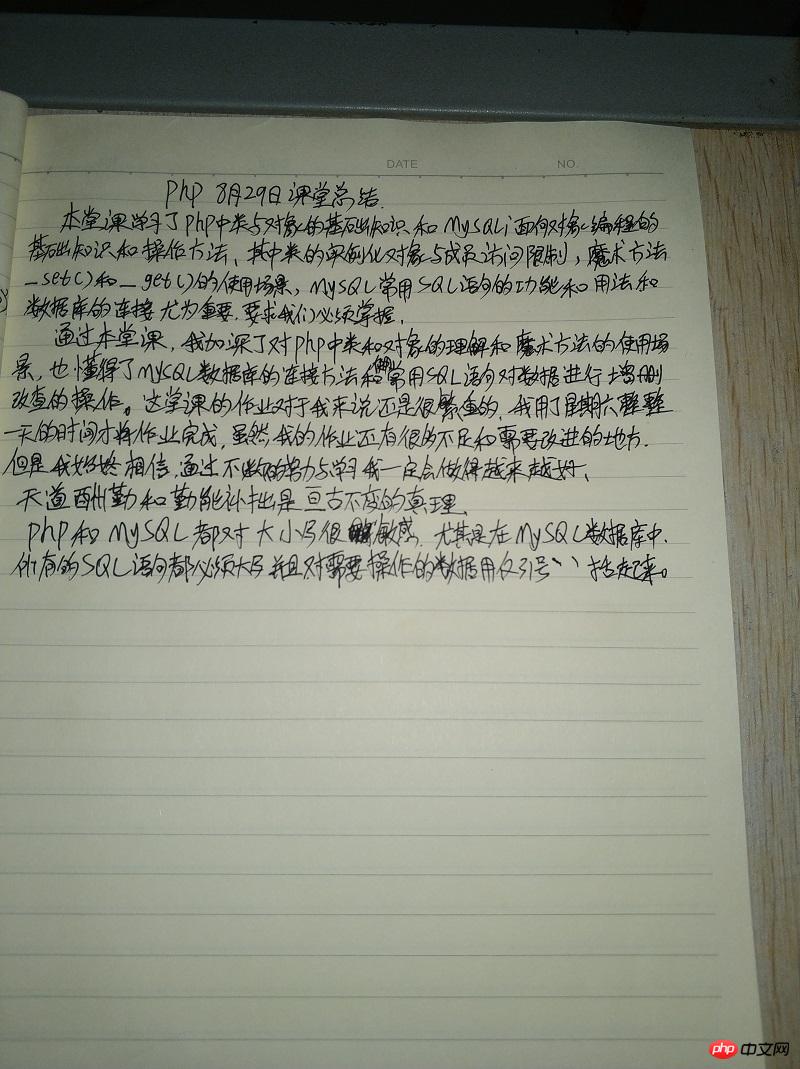 DATE NO.
php 8月29日课堂总结.
本堂课学习了php中类与对象的基础知识和MySQLi面向对象编程的
基础知识和操作方法、其中类的实例化对象与成员访问限制,魔术方法
_set()和_get()的使用场景,MySQL常用SQL语句的功能和用法和
数据库的连接尤为重要.要求我们必须掌握.
通过本堂课,我加深了对php中类和对象的理解和魔术方法的使用场
景,也懂得了MySQL数据库的连接方法和常用SQL语句对数据进行增删
改查的操作。这堂课的作业对于我来说还是很的,我用了星期六整整
一天的时间才将作业完成,虽然我的作业还有很多不足和需要改进的地方.
但是我始终相信,通过不断的努力与学习我一定会做得越来越好、
天道酬勤和勤能补拙是亘古不变的真理.
php和MySQL都对大小写很敏感.尤其是在MySQL数据库中.
所有的SQL语句都必须大写并且对需要操作的数据用反引号`` 括起来。
php 中文网